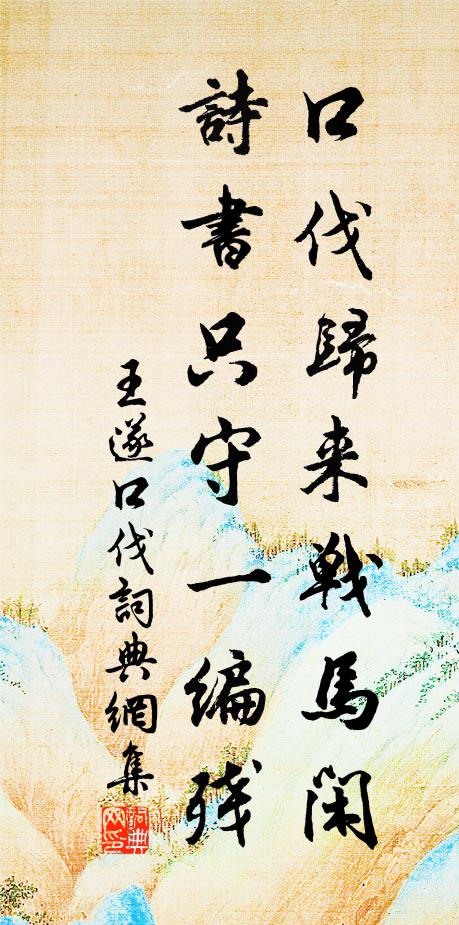 口伐歸来戦馬閑
詩書只守一编残
王遂口伐詞典網集
詞典